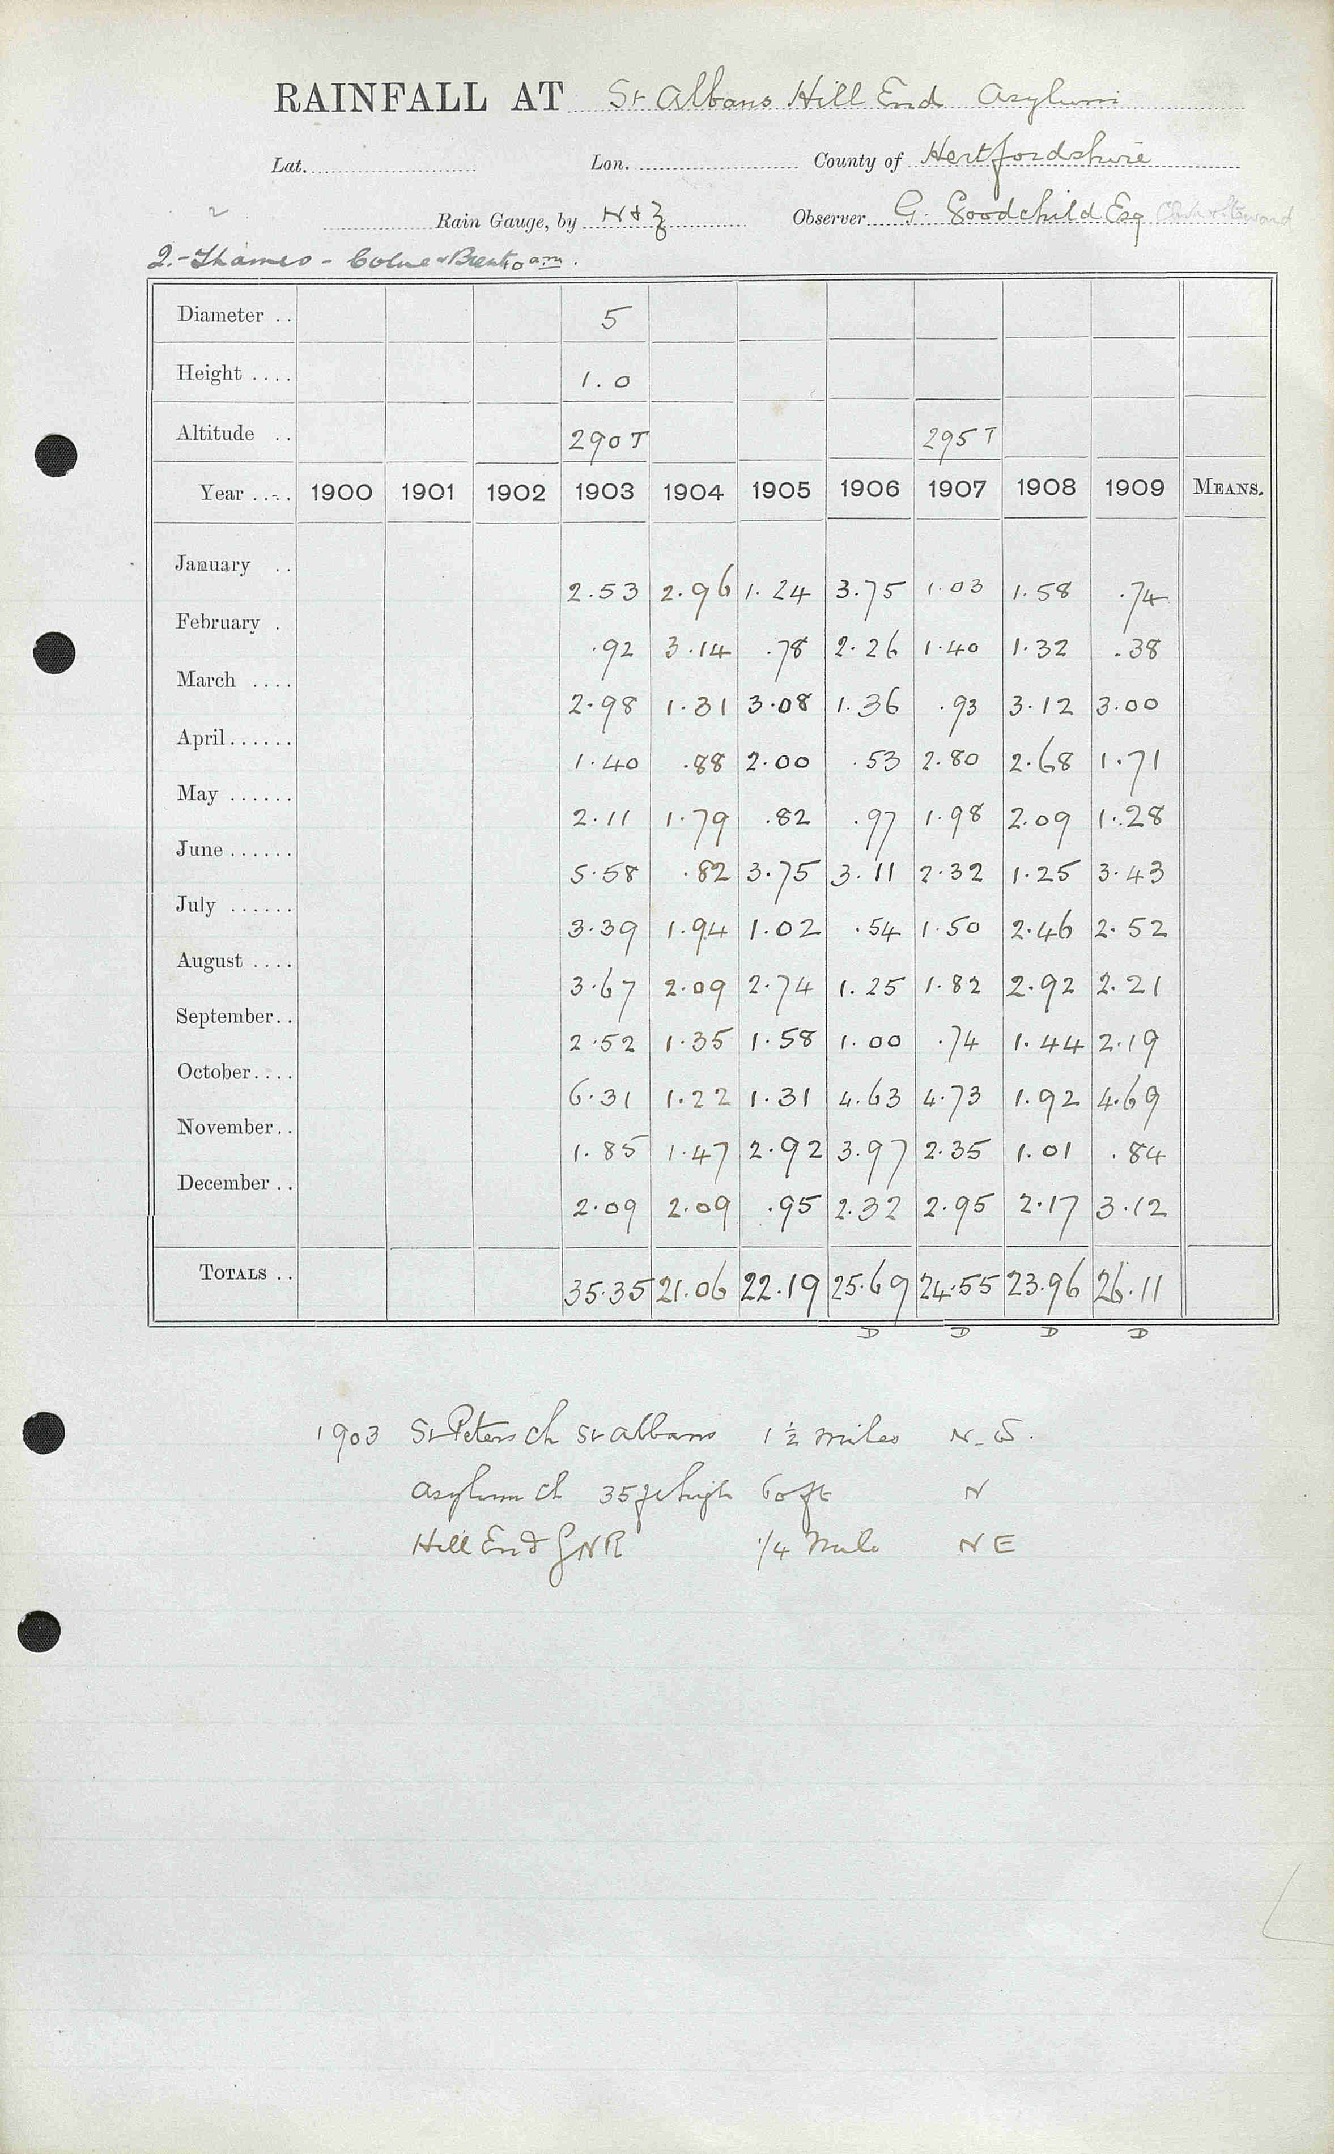 RAINFALL AT St Albans Hill End Asylum
Lat. Lon. County of Hertfordshire
2 Rain Gauge, by N & Z Observer G. Goodchild Esq Clerk & Steward
2.-Thames - Colne & Brent 9 am.
Diameter .. 5
Height .... 1.0
Altitude .. 290 T 295 T
Year .... 1900 1901 1902 1903 1904 1905 1906 1907 1908 1909 MEANS.
January .. 2.53 2.96 1.24 3.75 1.03 1.58 .74
February . .92 3.14 .78 2.26 1.40 1.32 .38
March .... 2.98 1.31 3.08 1.36 .93 3.12 3.00
April...... 1.40 .88 2.00 .53 2.80 2.68 1.71
May ...... 2.11 1.79 .82 .97 1.98 2.09 1.28
June...... 5.58 .82 3.75 3.11 2.32 1.25 3.43
July ...... 3.39 1.94 1.02 .54 1.50 2.46 2.52
August .... 3.67 2.09 2.74 1.25 1.82 2.92 2.21
September.. 2.52 1.35 1.58 1.00 .74 1.44 2.19
October.... 6.31 1.22 1.31 4.63 4.73 1.92 4.69
November.. 1.85 1.47 2.92 3.97 2.35 1.01 .84
December .. 2.09 2.09 .95 2.32 2.95 2.17 3.12
TOTALS .. 35.35 21.06 22.19 25.69 24.55 23.96 26.11
D D D D
1903 St Peters Ch St Albans 1 ½ miles N.W.
Asylum Ch 35 ft high 60 ft N
Hill End GNR 1/4 Mile NE